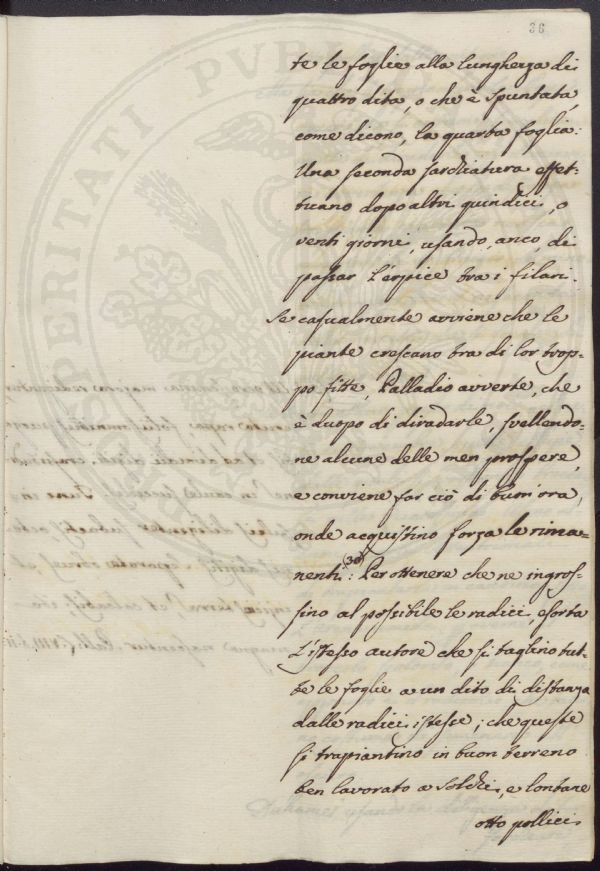 36
te le foglie alla lungheza di
quattro dita, o che è spuntata,
come dicono, la quarta foglia.
Una seconda sarchiatura effet-
tuano dopo altri quindici, o
venti giorni, usando, anco, di
passar l'erpice tra i filari.
Se casualmente avviene che le
piante crescano tra di lor trop-
po fitte, Palladio avverte, che
è duopo di diradarle, svellendo-
ne alcune delle men prospere,
e conviene far ciò di buon'ora,
onde acquistino forza le rima-
nenti (30): Per ottenere che ne ingros-
sino al possibile le radici, esorta
l'istesso autore che si taglino tut-
te le foglie a un dito di distanza
dalle radici istesse; che queste
si trapiantino in buon terreno
ben lavorato a solchi, e lontane
otto pollici
PROSPERITATI PVBL